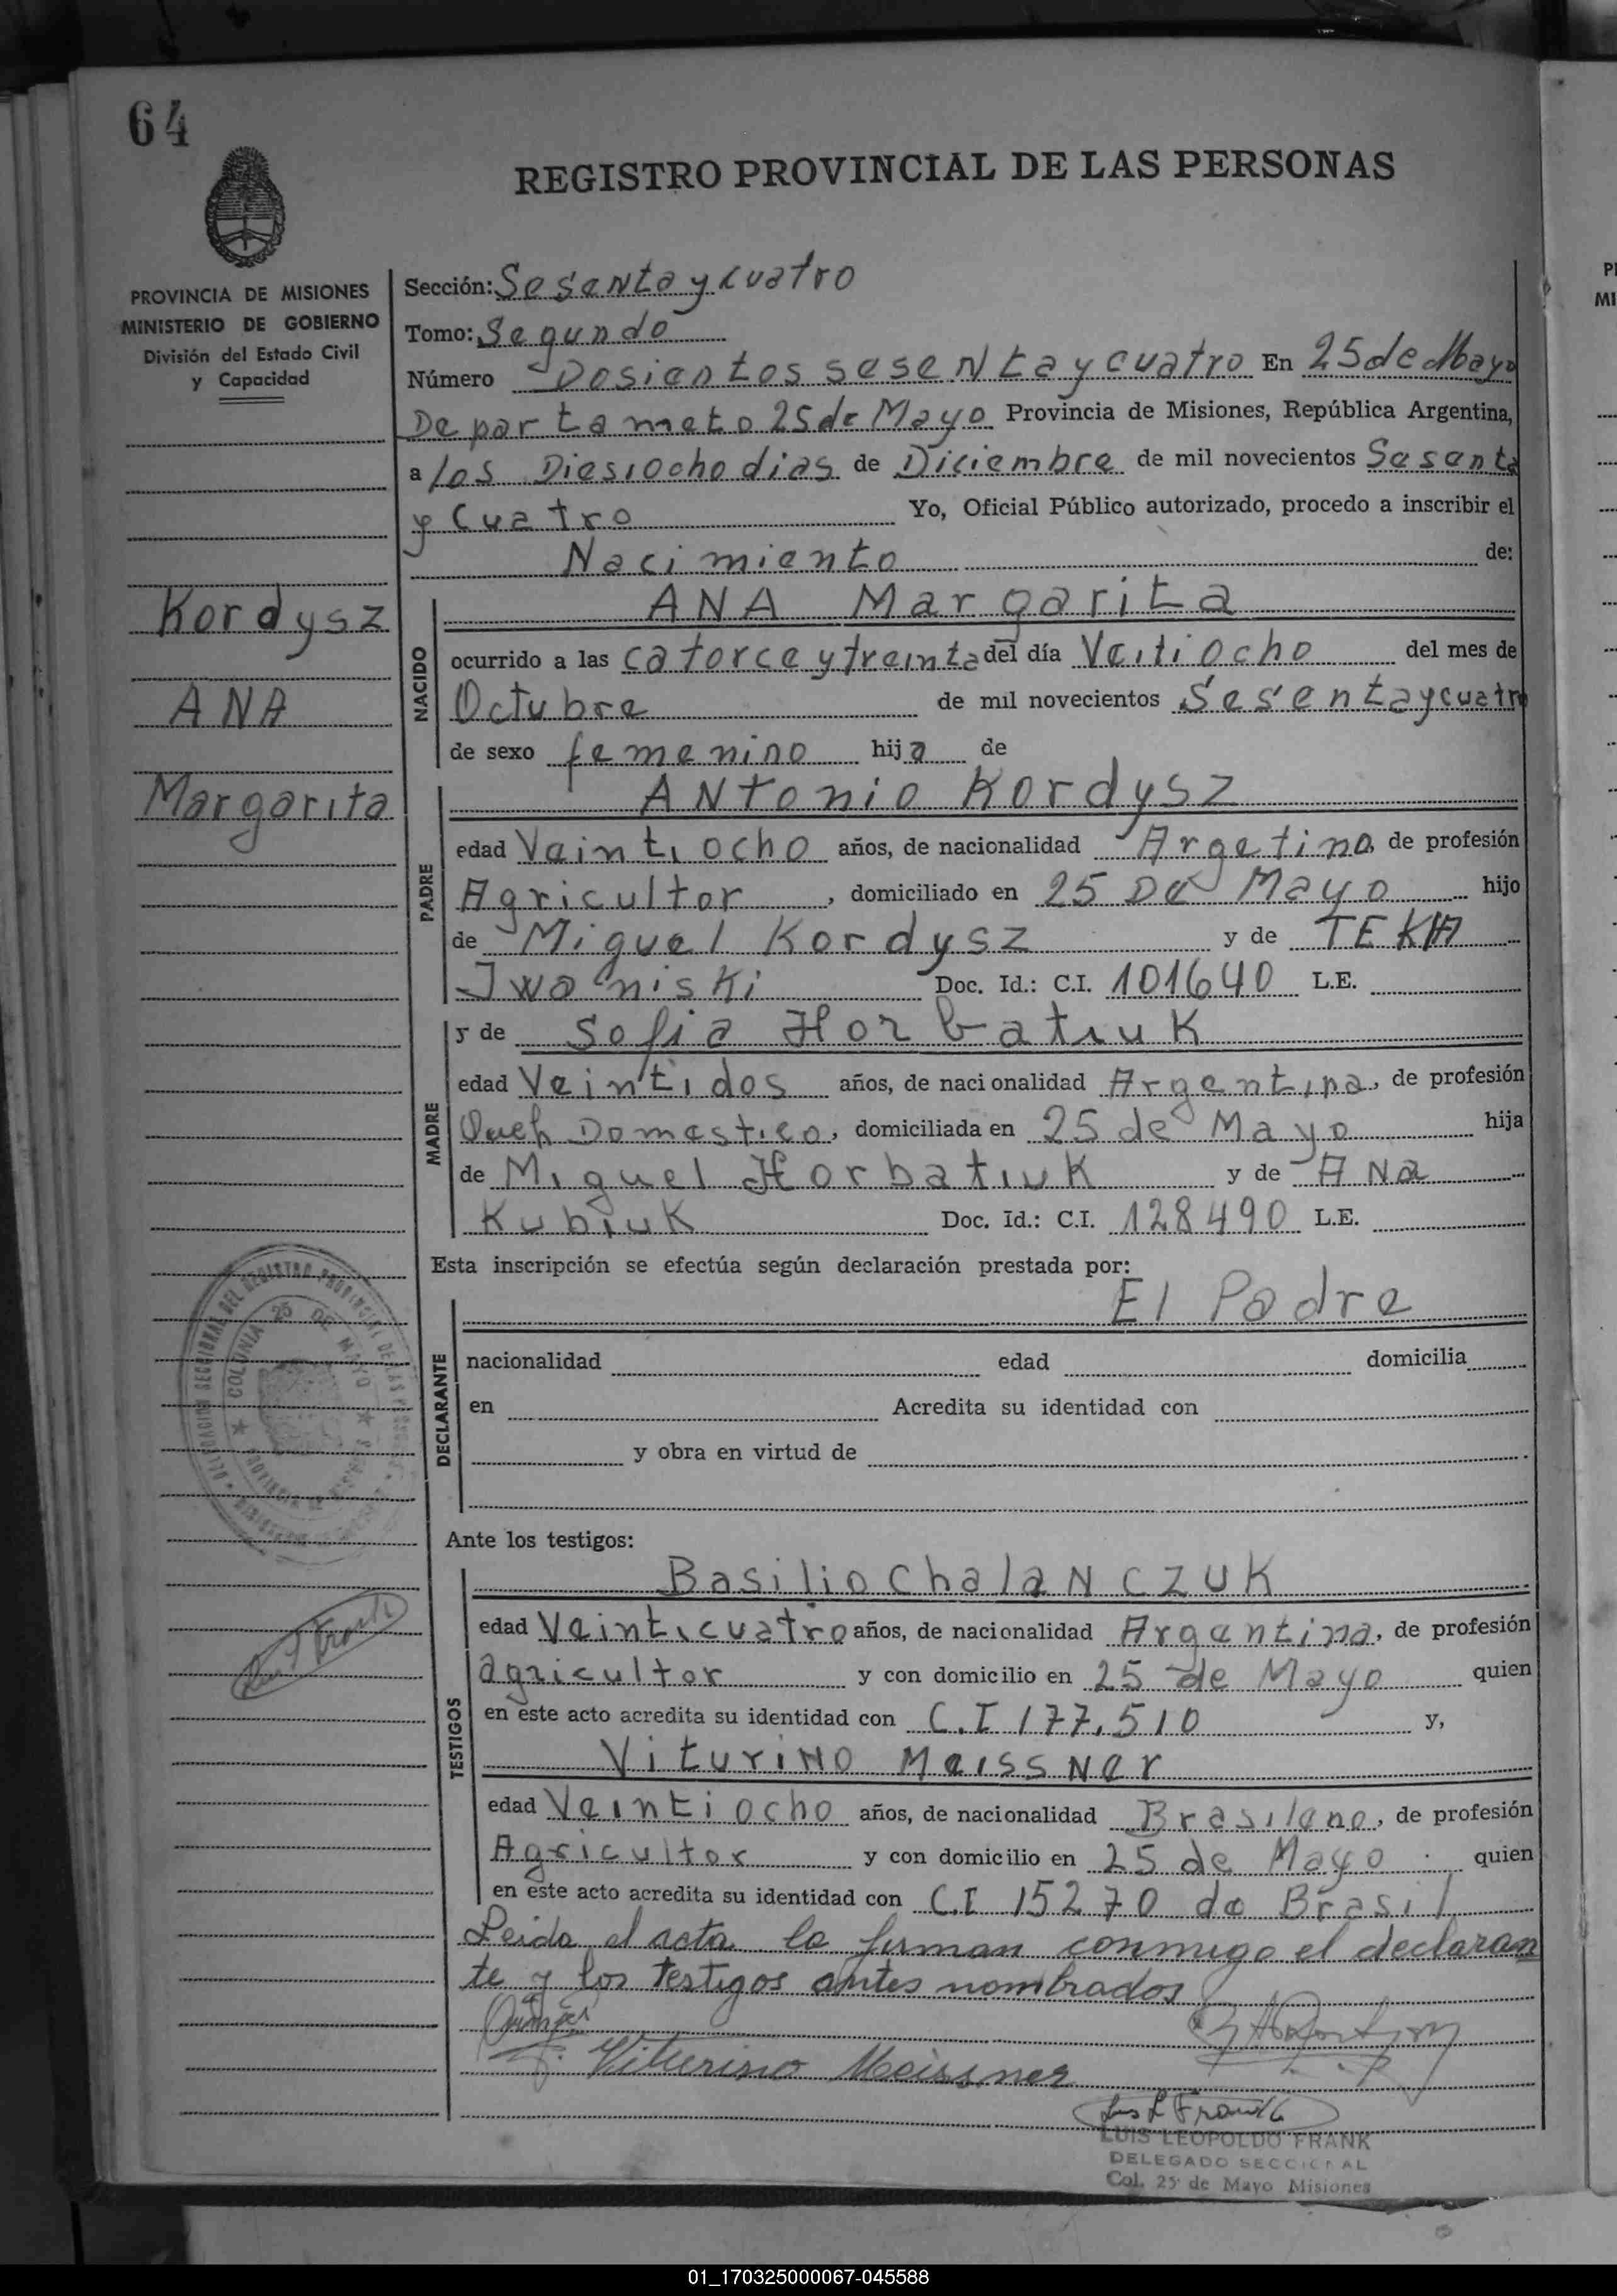 64
REGISTRO PROVINCIAL DE LAS PERSONAS
PROVINCIA DE MISIONES
MINISTERIO DE GOBIERNO
División del Estado Civil
y Capacidad
Kordysz
ANA
Margarita
Sección: Sesenta y cuatro
Tomo: Segundo
Número Dosientos sesenta y cuatro En 25 de Mayo
Departameto 25 de Mayo Provincia de Misiones, República Argentina,
a los Diesiocho dias de Diciembre de mil novecientos Sesenta
y Cuatro Yo, Oficial Público autorizado, procedo a inscribir el
Nacimiento de:
NACIDO
ANA Margarita
ocurrido a las catorce y treinta del día Veitiocho del mes de
Octubre de mil novecientos Sesenta y cuatro
de sexo femenino hija de
PADRE
ANTonio Kordysz
edad Veintiocho años, de nacionalidad Argetino, de profesión
Agricultor, domiciliado en 25 De Mayo hijo
de Miguel Kordysz y de TEKLA
Iwaniski Doc. Id.: C.I. 101640 L.E.
MADRE
y de Sofia Horbatiuk
edad Veintidos años, de nacionalidad Argentina, de profesión
Domestico, domiciliada en 25 de Mayo hija
de Miguel Horbatiuk y de ANa
Kubiuk Doc. Id.: C.I. 128490 L.E.
Esta inscripción se efectúa según declaración prestada por:
El Padre
DECLARANTE
nacionalidad edad domicilia
en Acredita su identidad con
y obra en virtud de
COLONIA 25 DE MAYO
Ante los testigos:
TESTIGOS
Basilio ChalaNCZUK
edad Veinticuatro años, de nacionalidad Argentina, de profesión
agricultor y con domicilio en 25 de Mayo quien
en este acto acredita su identidad con C.I 177.510 y,
VituriNo MeissNer
edad Veintiocho años, de nacionalidad Brasileno, de profesión
Agricultor y con domicilio en 25 de Mayo quien
en este acto acredita su identidad con C.I 15270 de Brasil
Leida el acta la firman conmigo el declaran
te y los testigos antes nombrados
Viturino Meissner
LUIS LEOPOLDO FRANK
DELEGADO SECCIONAL
Col. 25 de Mayo Misiones
01_170325000067-045588